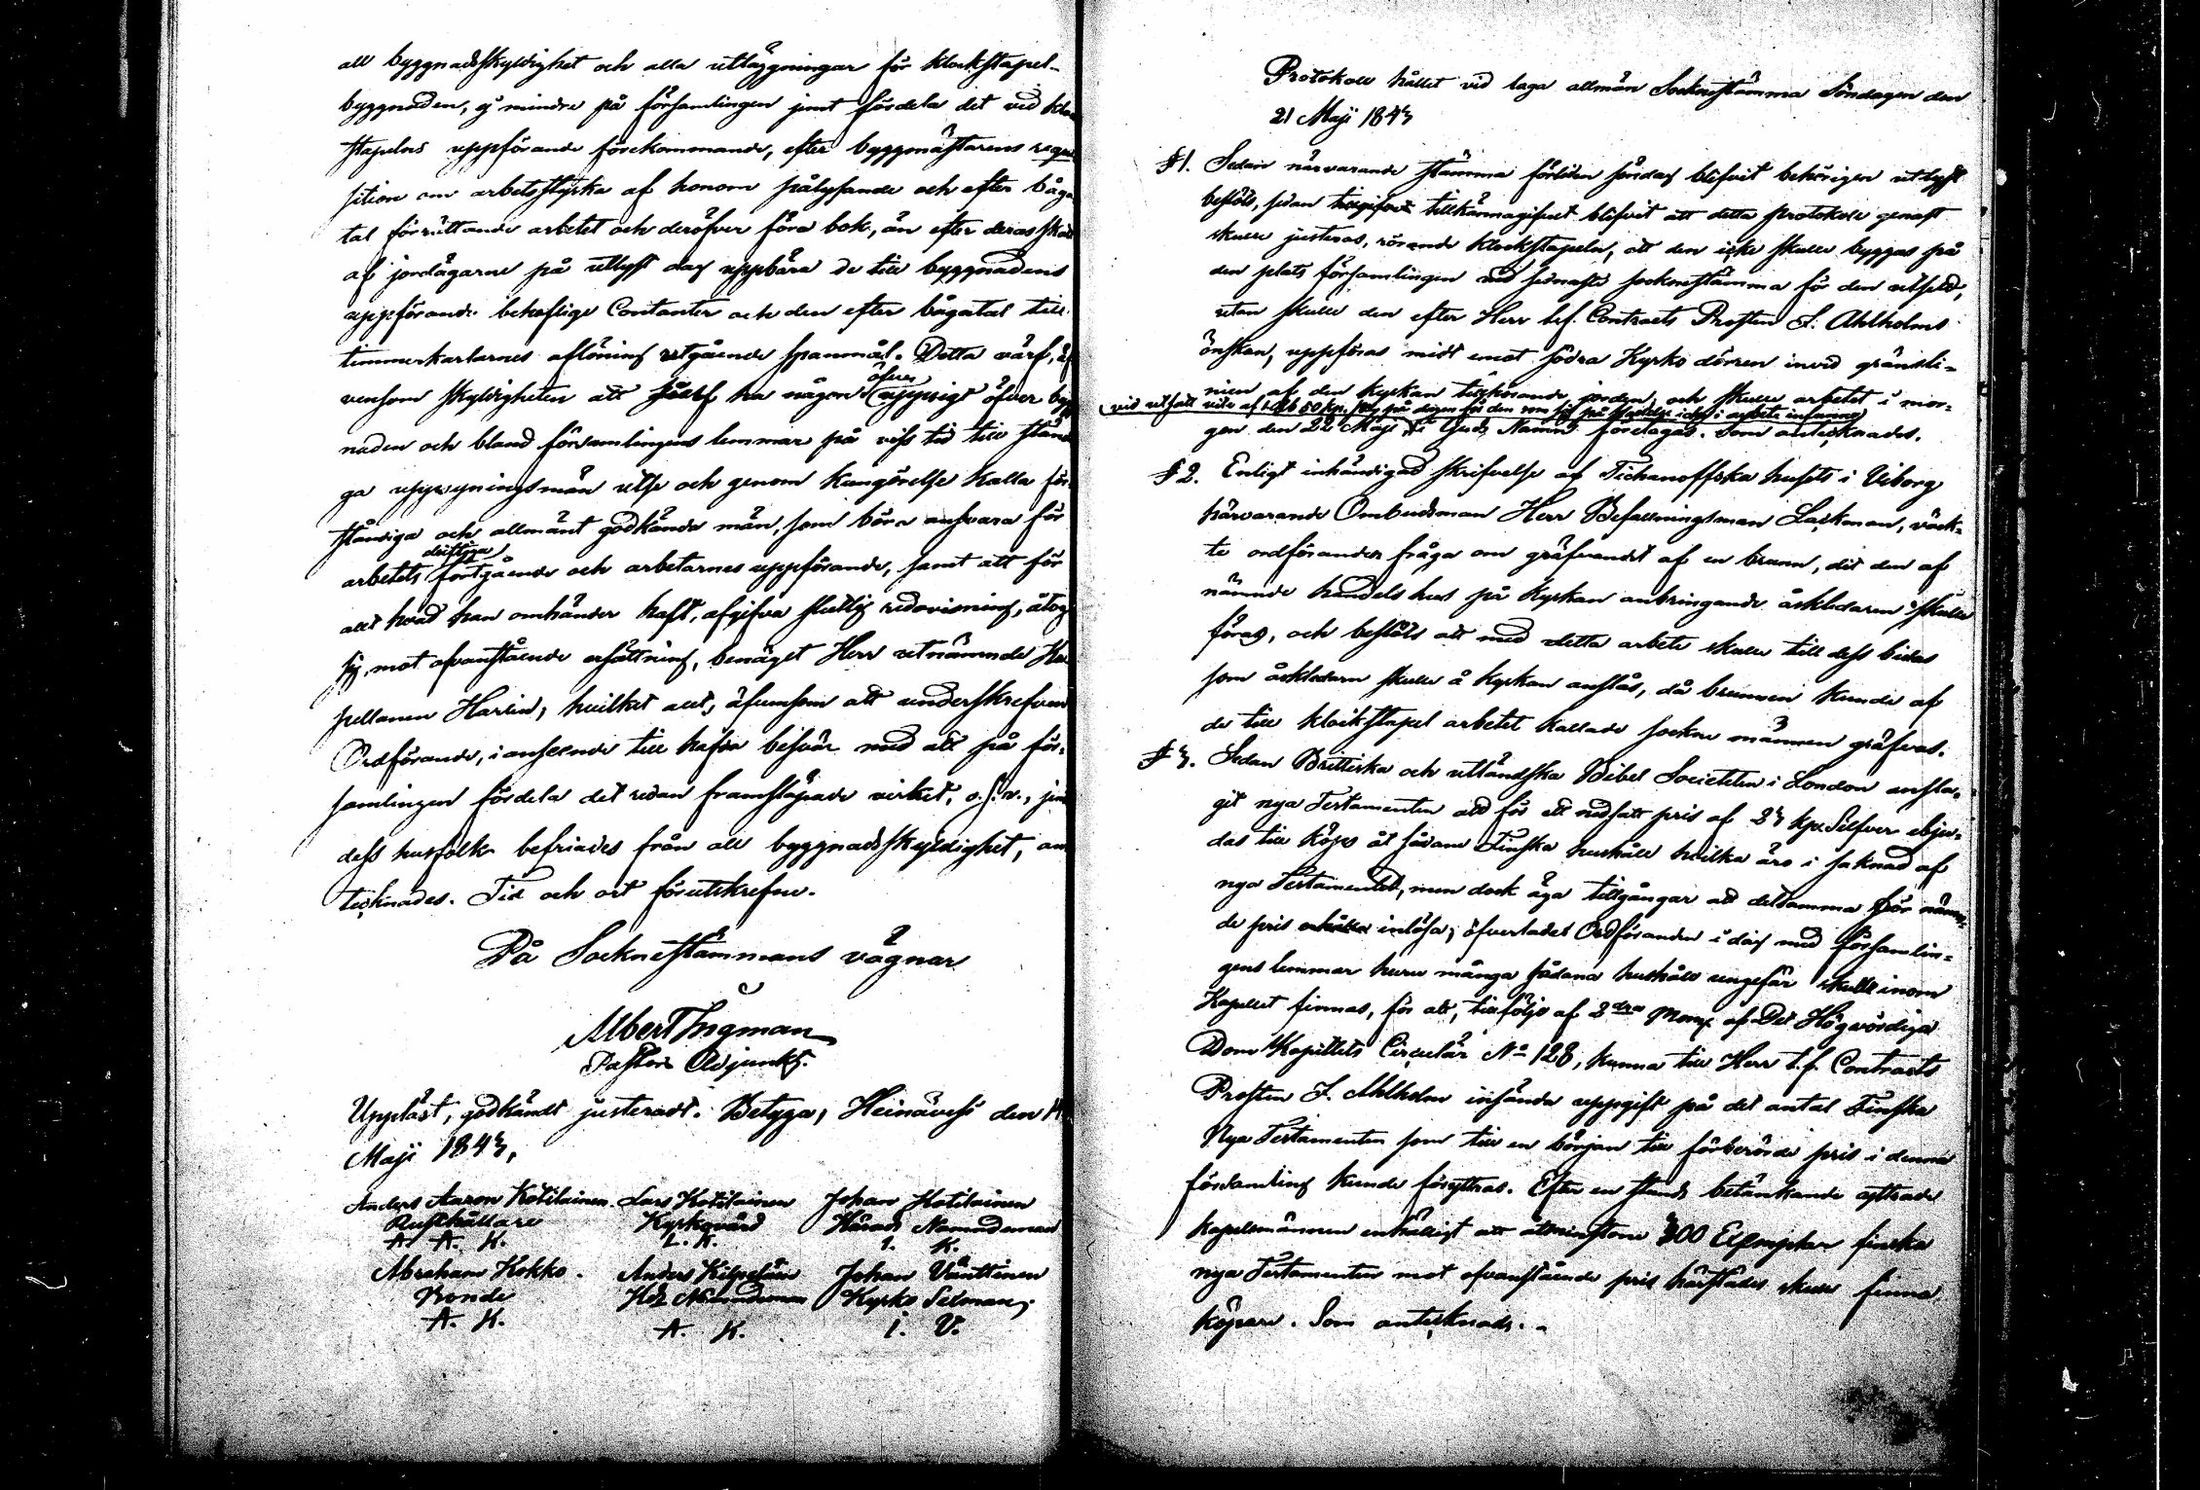 all byggnadsskyldighet och alla utläggningar för klockstapel-
byggnaden, ej mindre på församlingen jemt fördela det vid klo
stapelns uppförande förekommande, efter byggmästarens requi
sition om arbetsstyrka af honom pålysande och efter båga
tal förrättande arbetet och deröfver föra bok, än efter deras
af jordägarne på utlyst dag uppbära de till byggnadens
uppförande behöflige Contanter och den efter bågatal till
timmerkarlarnes aflöning utgående spanmål. Detta värf, äf
vensom skyldigheten att sjelf ha någon öfver uppsigt öfver byg
naden och bland församlingens lemmar på viss tid till stän
ga uppsyningsmän utse och genom kungörelse kalla för
ståndiga och allmänt godkände män, som böra ansvara för
arbetets driftiga fortgående och arbetarnes uppförande, samt att för
allt hvad han omhänder haft, afgifva slutlig redovisning, åtog
sig, mot ofvanstående ersättning, benäget Herr utnämnde Ka
pellanen Harlin; hvilket allt, äfvensom att underskrefven
Ordförande, i anseende till hafda besvär med att på för-
samlingen fördela det redan framsläpade virket, o.s.v., jem
dess husfolk befriades från all byggnadsskyldighet, an
tecknades. Tid och ort förutskrefne.
På Socknestämmans vägnar
Albert Ingman
Pastors Adjunkt.
Uppläst, godkändt justeradt. Betyga; Heinävesi den
Maji 1843,
Anders Aaron Kotilainen. Lars Kotilainen Johan Kotilainen
Rusthållare Kyrkovärd Härads Nämndeman
A. A. K. L. K. I. K.
Abraham Kokko. Anders Kilpeläin Johan Vänttinen
Bonde Hds Nämndeman Kyrko Sexman
A. K. A. K. I. V.
Protokoll hållet vid laga allmän Sockenstämma Söndagen den
21 Maji 1843
§ 1. Sedan närvarande stämma förliden söndag blifvit behörigen utlyst
beslöts, sedan tillkännagifvet blifvit att detta protokoll genast
skulle justeras, rörande klockstapeln, att den icke skulle byggas på
den plats församlingen vid sednaste sockenstämma för den utsedt,
utan skulle den efter Herr t.f. Contracts Prosten F. Ahlholms
önskan, uppföras midt emot södra Kyrko dörren invid gränsli-
nien af den kyrkan tillhörande jorden, och skulle arbetet i mor-
vid utsatt vite af 1 Rub 50 kop. Slfr på dagen för den som ej
gen den 22 Maji i Guds Namn företagas. Som antecknades.
§ 2. Enligt inhändigad skrifvelse af Tichanoffska husets i Viborg
härvarande Ombudsman Herr Befallningsman Lackman, väck-
te ordföranden fråga om gräfvandet af en brunn, dit den af
nämnde handelshus på Kyrkan anbringande åskledaren skulle
föras, och beslöts att med detta arbete skulle till dess bidas
som åskledaren skulle å Kyrkan anslås, då brunnen kunde af
de till klockstapel arbetet kallade sockne männen gräfvas.
§ 3. Sedan Brittiska och utländska Bibel Societeten i London ansla-
git nya Testamenten att för ett nedsatt pris af 23 kop. Silfver utbju-
das till köps åt sådane Finska hushåll hvilka äro i saknad af
nya Testamentet, men dock äga tillgångar att detsamma för nämn-
de pris inlösa; öfverlades Ordföranden i dag med församlin-
gens lemmar huru många sådana hushåll ungefär skulle inom
Kapellet finnas, för att, till följe af 2dra Mom: af Det Högvördiga
Dom Kapitlets Circulär No 128, kunna till Herr t.f. Contracts
Prosten F. Ahlholm insända uppgift på det antal Finska
Nya Testamenten som till en början till förberörde pris i denna
församling kunde föryttras. Efter en stunds betänkande yttrade
kapellmännen enhälligt att åtminstone 300 Exemplar finska
nya Testamenten mot ofvanstående pris härstädes skulle finna
köpare. Som antecknades.